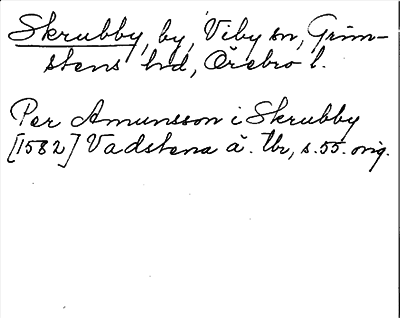 Skrubby, by, Viby sn, Grim-
stens hd, Örebro l.
Per Amunsson i Skrubby
[1582] Vadstena ä. tbr, s. 55. orig.